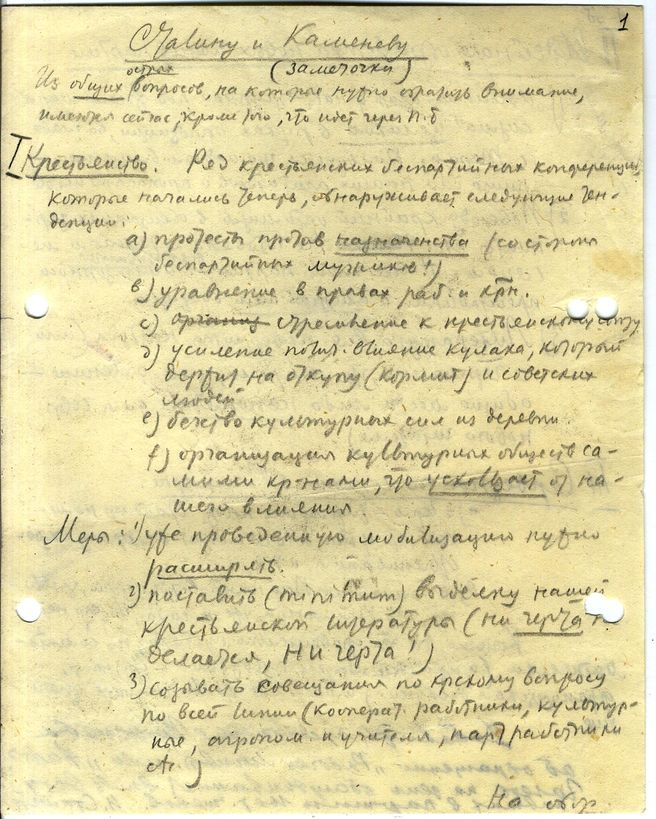 1
Сталину и Каменеву
(Заметочки)
острых
Из общих вопросов, на которые нужно обратить внимание,
имеются сейчас, кроме того, что идет через П.Б
I Крестьянство. Ряд крестьянских беспартийных конференций,
которые начались теперь, обнаруживает следующие тен-
денции:
a) протесты против назначенства (со стороны
беспартийных мужиков!)
b) уравнение в правах раб. и крн.
c) организ стремление к крестьянскому союзу
d) усиление полит. влияние кулака, который
держит на откупу (кормит) и советских
людей
e) бегство культурных сил из деревни.
f) организация культурных обществ са-
мими кр-нами, что ускользает от на-
шего влияния
Меры: 1) уже проведенную мобилизацию нужно
расширять.
2) поставить (minimum) выделку нашей
крестьянской литературы (ни черта н
делается, ни черта!)
3) созывать совещания по крскому вопросу
по всей линии (кооперат. работники, культур-
ные, агроном. и учителя, парт. работники
etc.)
На обор.